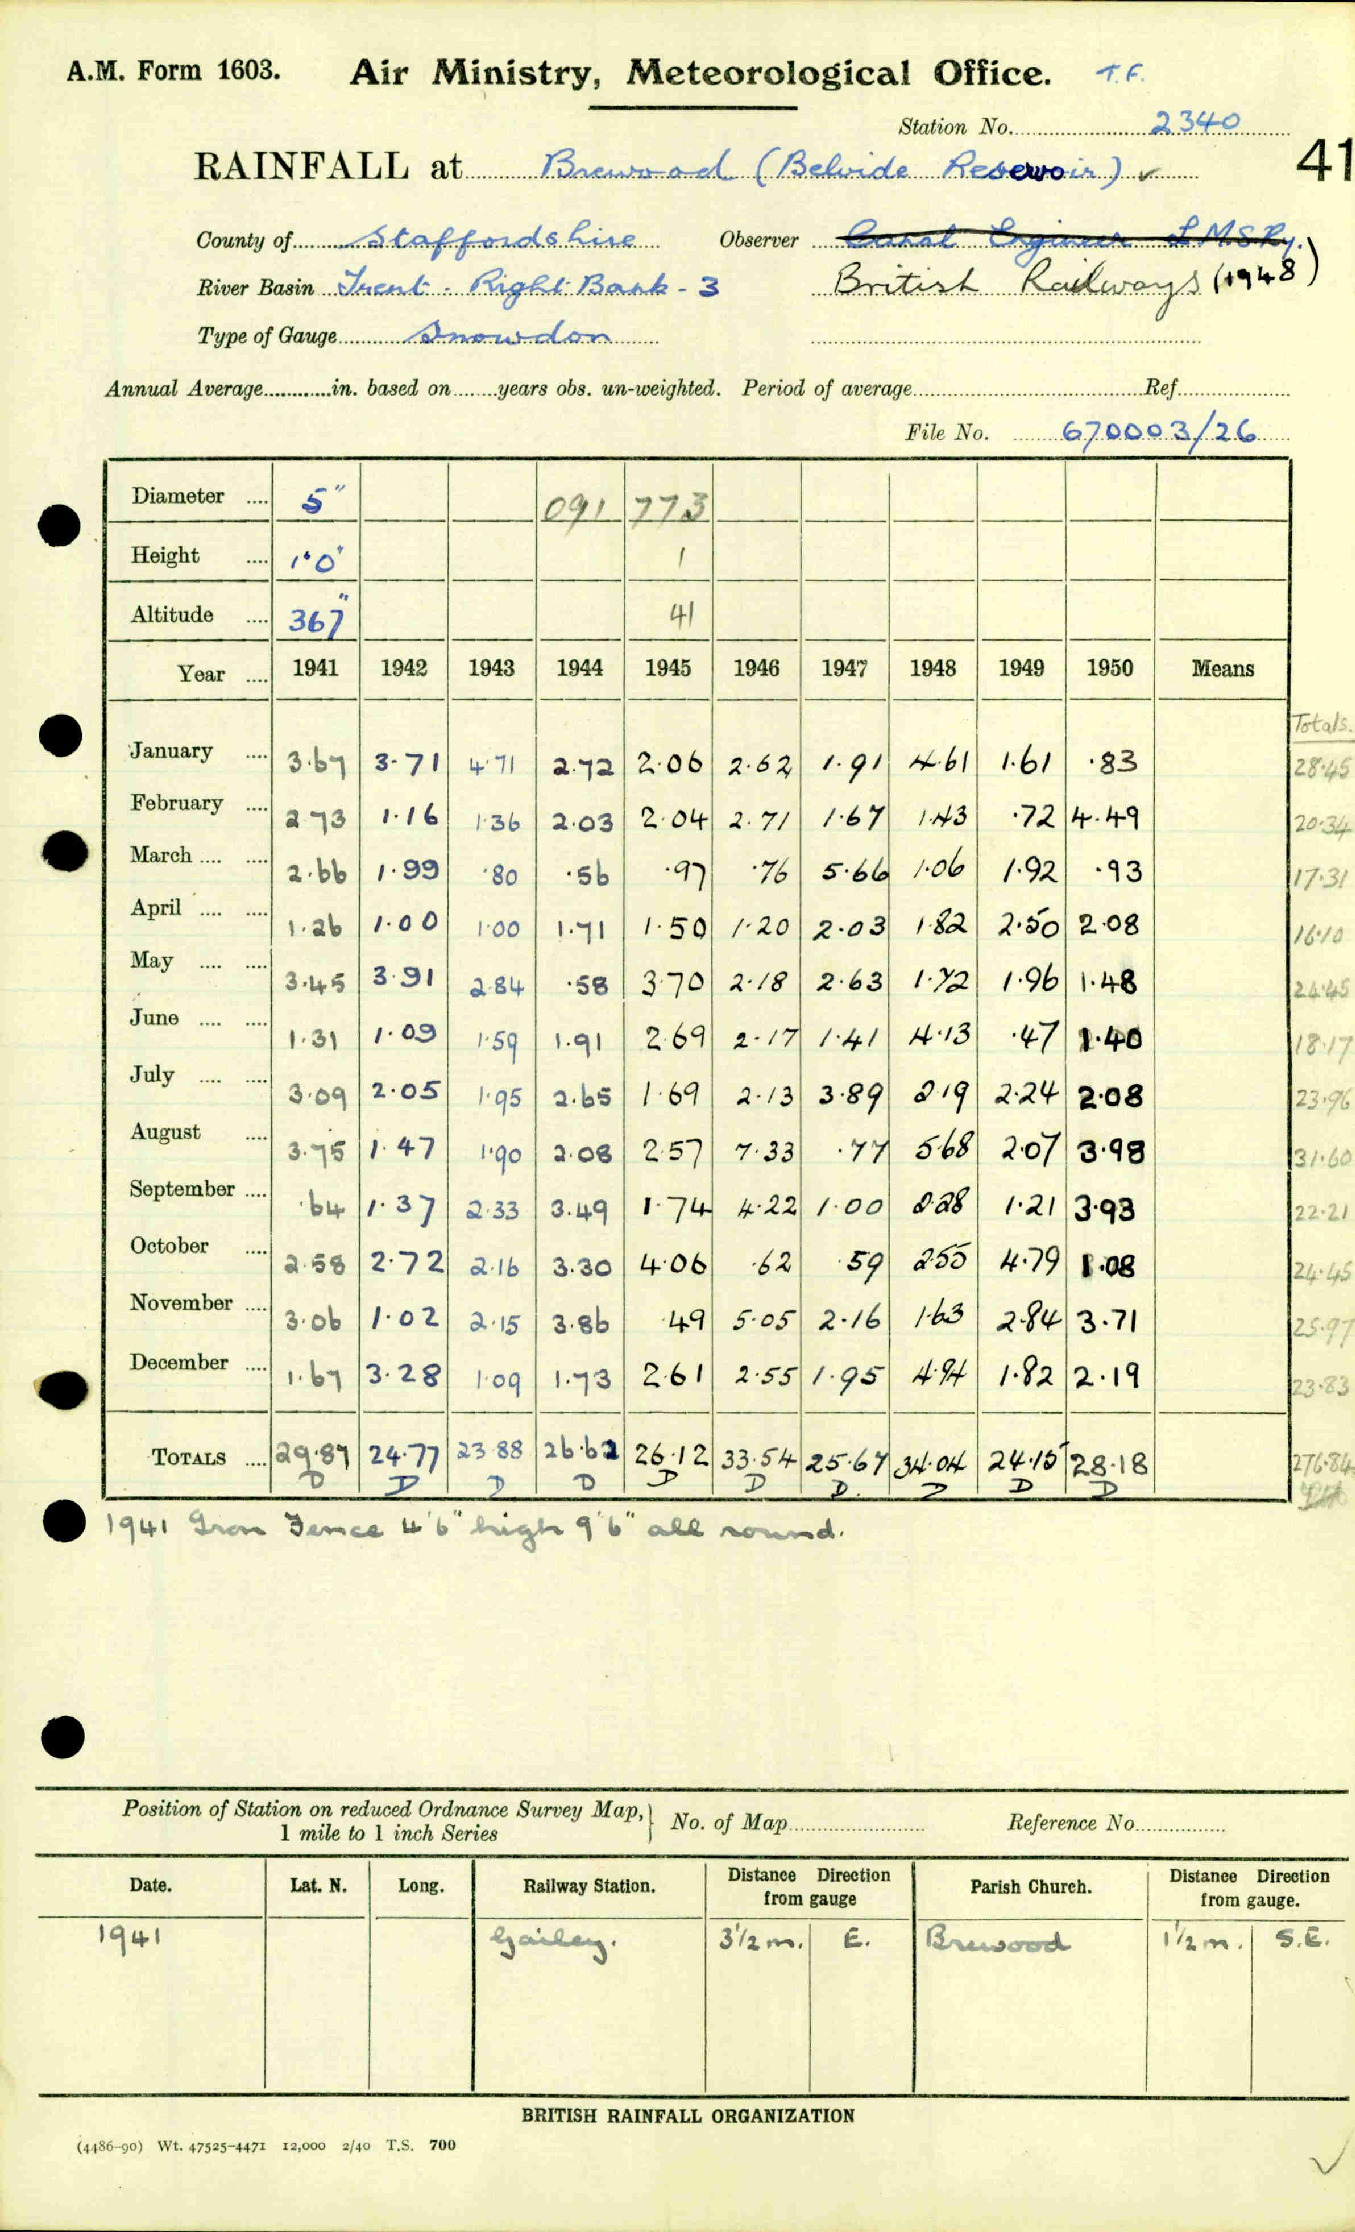 A.M. Form 1603. Air Ministry, Meteorological Office. T.F.
Station No. 2340
41
RAINFALL at Brewood (Belvide Reservoir) ✓
County of Staffordshire Observer Canal Engineer L.M.S.Ry.
River Basin Trent - Right Bank - 3 British Railways (1948)
Type of Gauge Snowdon
Annual Average in. based on years obs. un-weighted. Period of average Ref.
File No. 670003/26
Diameter 5" 091 773
Height 1'0" 1
Altitude 367" 41
Year 1941 1942 1943 1944 1945 1946 1947 1948 1949 1950 Means
Totals.
January 3.67 3.71 4.71 2.72 2.06 2.62 1.91 4.61 1.61 .83 28.45
February 2.73 1.16 1.36 2.03 2.04 2.71 1.67 1.43 .72 4.49 20.34
March 2.66 1.99 .80 .56 .97 .76 5.66 1.06 1.92 .93 17.31
April 1.26 1.00 1.00 1.71 1.50 1.20 2.03 1.82 2.50 2.08 16.10
May 3.45 3.91 2.84 .58 3.70 2.18 2.63 1.72 1.96 1.48 24.45
June 1.31 1.09 1.59 1.91 2.69 2.17 1.41 4.13 .47 1.40 18.17
July 3.09 2.05 1.95 2.65 1.69 2.13 3.89 2.19 2.24 2.08 23.96
August 3.75 1.47 1.90 2.08 2.57 7.33 .77 5.68 2.07 3.98 31.60
September .64 1.37 2.33 3.49 1.74 4.22 1.00 2.28 1.21 3.93 22.21
October 2.58 2.72 2.16 3.30 4.06 .62 .59 2.55 4.79 1.08 24.45
November 3.06 1.02 2.15 3.86 .49 5.05 2.16 1.63 2.84 3.71 25.97
December 1.67 3.28 1.09 1.73 2.61 2.55 1.95 4.94 1.82 2.19 23.83
TOTALS 29.87 24.77 23.88 26.62 26.12 33.54 25.67 34.04 24.15 28.18 276.84
D D D D D D D. D D D
1941 Iron Fence 4'6" high 9'6" all round.
Position of Station on reduced Ordnance Survey Map, No. of Map Reference No.
1 mile to 1 inch Series
Date. Lat. N. Long. Railway Station. Distance Direction from gauge Parish Church. Distance Direction from gauge.
1941 Gailey. 3½ m. E. Brewood 1½ m. S.E.
BRITISH RAINFALL ORGANIZATION
(4486-90) Wt. 47525-4471 12,000 2/40 T.S. 700
✓